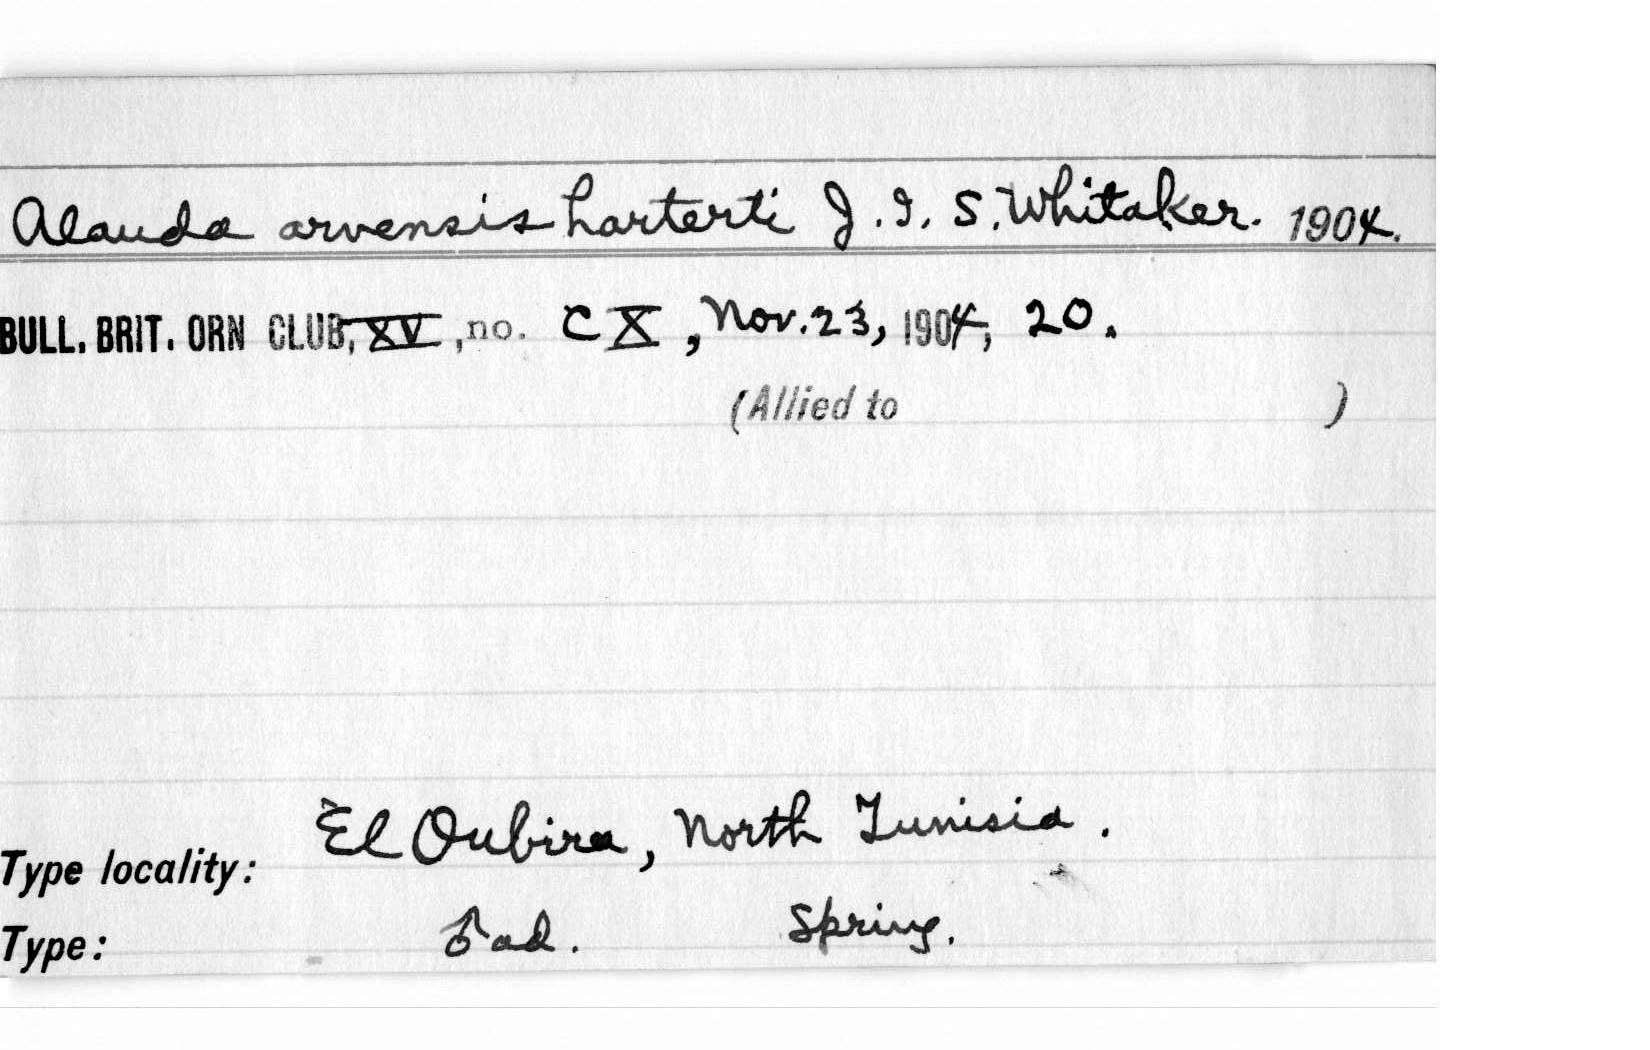 Alauda arvensis harterti J. I. S. Whitaker. 1904.
BULL. BRIT. ORN CLUB, XV, no. CX, Nov. 23, 1904, 20.
(Allied to )
Type locality: El Oubira, North Tunisia.
Type: ♂ ad. Spring.